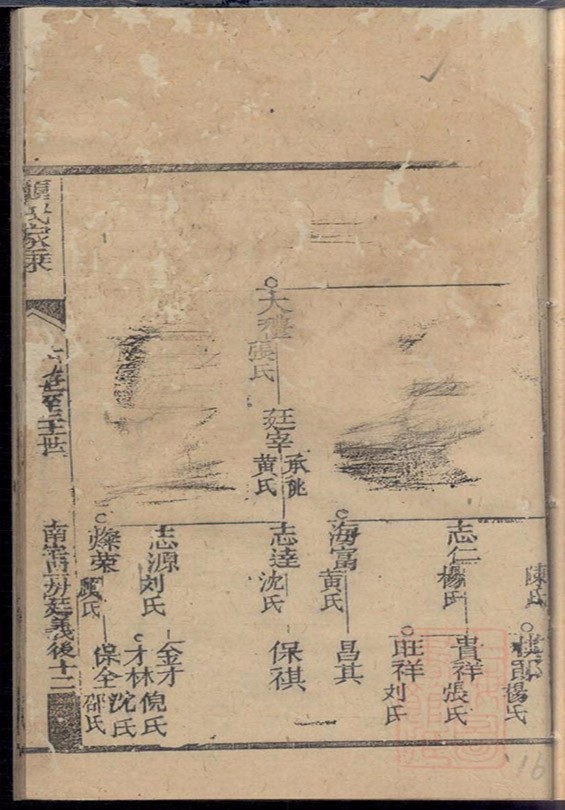 陳氏
楊氏
志仁
楊氏
貴祥
張氏
旺祥
刘氏
海富
黄氏
昌其
大禮
張氏
廷宰
承祧
黄氏
志達
沈氏
保祺
志源
刘氏
金才
倪氏
才林
沈氏
燦荣
保全
邵氏
氏家乘
世至三十世
南宅四房廷義後十二
16